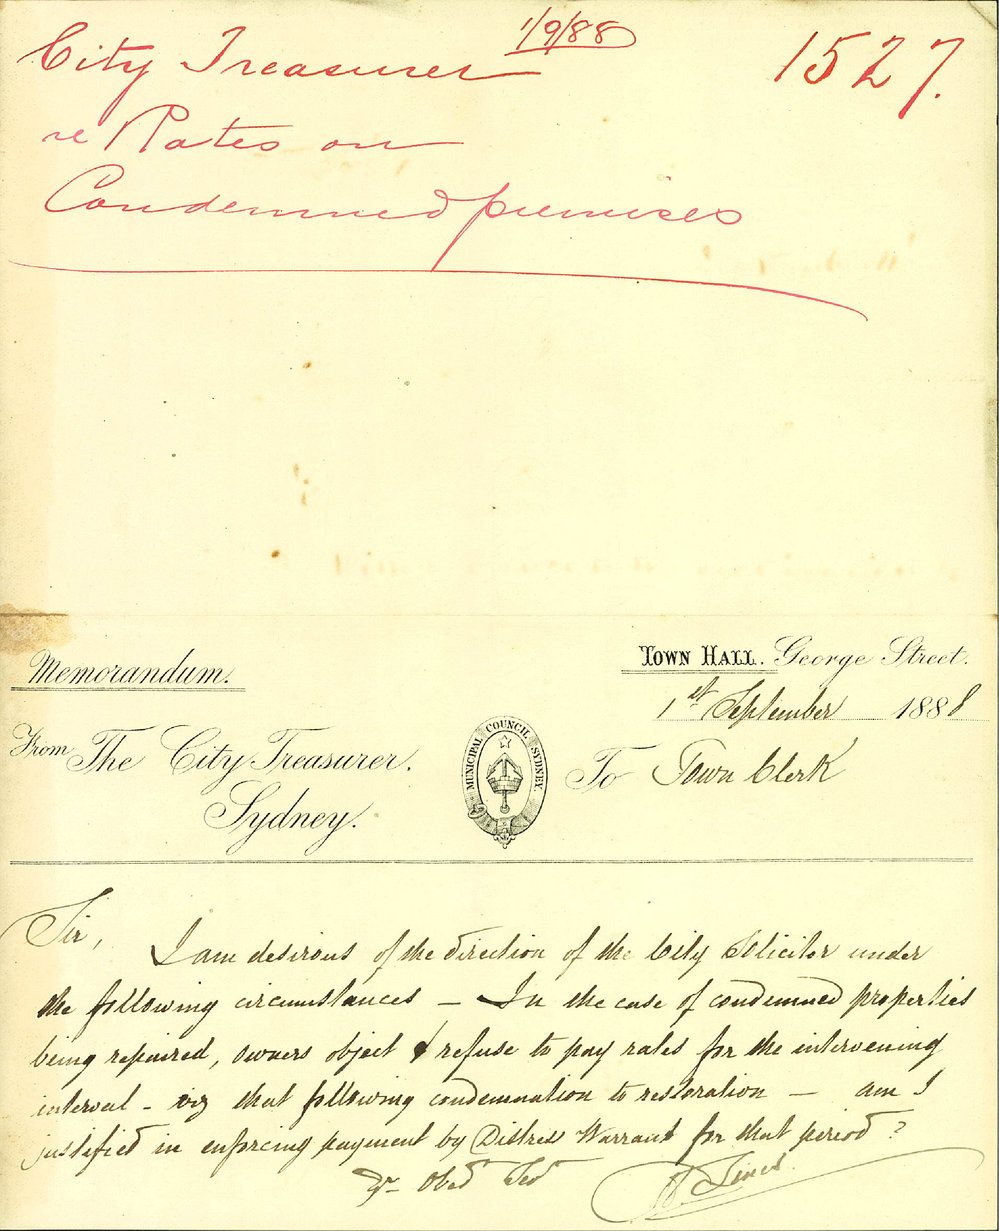 1/9/88
City Treasurer
1527.
re Rates on
Condemned premises
Memorandum.
TOWN HALL. George Street.
1st September 1888
From The City Treasurer.
Sydney.
MUNICIPAL COUNCIL SYDNEY.
To Town Clerk
Sir,
I am desirous of the direction of the City Solicitor under
the following circumstances — In the case of condemned properties
being repaired, owners object & refuse to pay rates for the intervening
interval - viz that following condemnation to restoration — am I
justified in enforcing payment by Distress Warrant for that period?
Yr Obed Ser